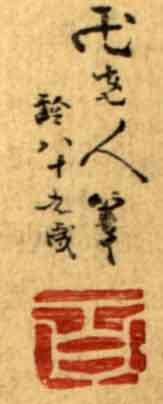 卍老人筆
齢八十九歳
百